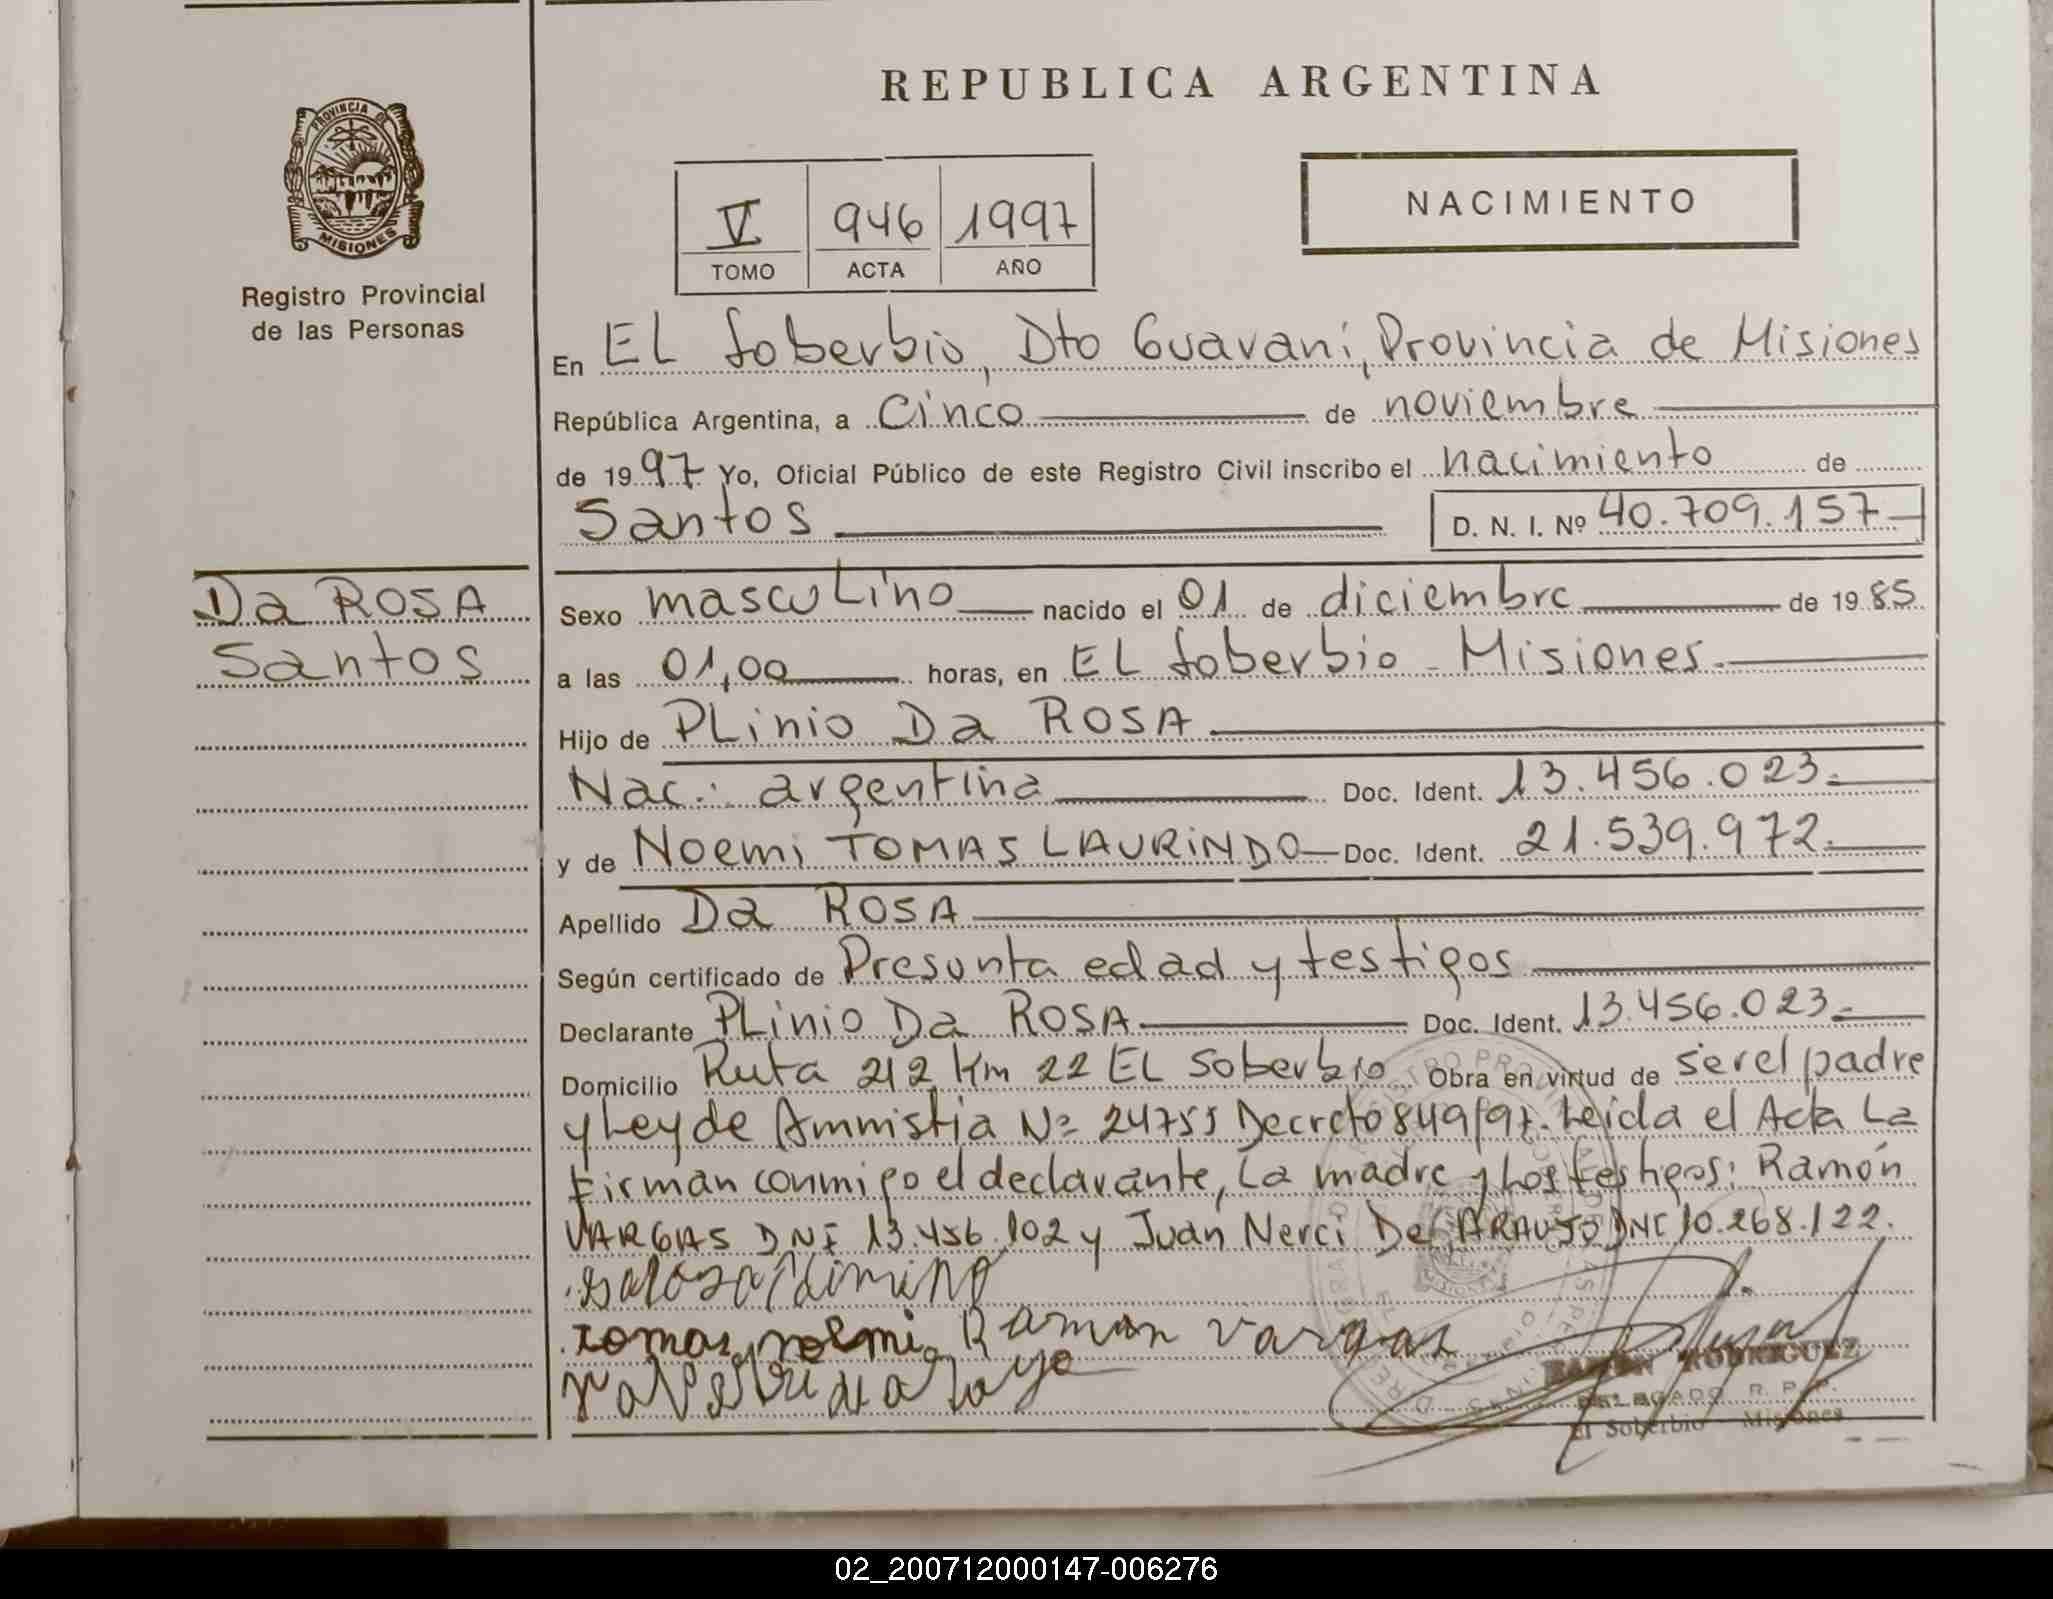 REPUBLICA ARGENTINA
PROVINCIA DE
MISIONES
Registro Provincial
de las Personas
V 946 1997
TOMO ACTA AÑO
NACIMIENTO
En El Soberbio, Dto Guaraní, Provincia de Misiones
República Argentina, a Cinco de noviembre
de 1997 Yo, Oficial Público de este Registro Civil inscribo el nacimiento de
Santos D. N. I. Nº 40.709.157
Da ROSA
Santos
Sexo masculino nacido el 01 de diciembre de 1985
a las 01,00 horas, en El Soberbio - Misiones.
Hijo de Plinio Da ROSA
Nac.: argentina Doc. Ident. 13.456.023.
y de Noemi TOMAS LAURINDO Doc. Ident. 21.539.972.
Apellido Da ROSA
Según certificado de Presunta edad y testigos
Declarante Plinio Da ROSA Doc. Ident. 13.456.023.
Domicilio Ruta 212 Km 22 El Soberbio Obra en virtud de ser el padre
y Ley de Amnistia Nº 24755 Decreto 849/97. Leida el Acta La
Firman conmigo el declarante, la madre y Los testigos: Ramón
VARGAS DNI 13.456.102 y Juan Nerci De ARAUJO DNI 10.268.122.
tomas noemi Ramon Vargas
RAMON RODRIGUEZ
DELEGADO R. P. P.
El Soberbio Misiones
02_200712000147-006276